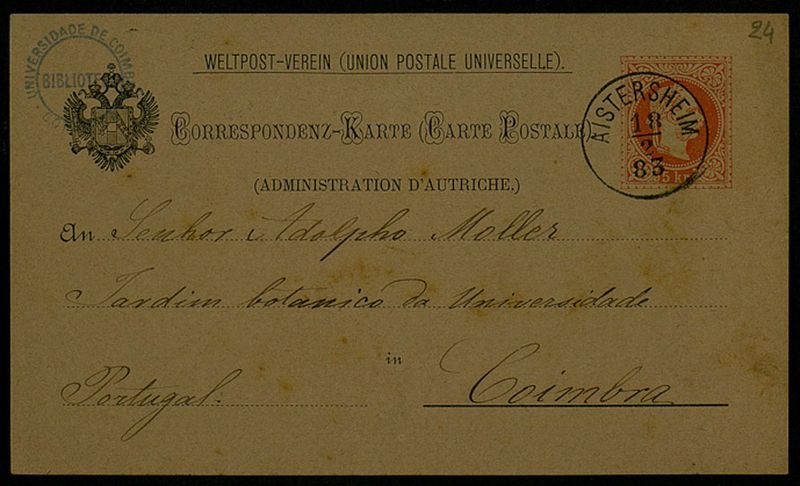 24
UNIVERSIDADE DE COIMBRA
WELTPOST-VEREIN (UNION POSTALE UNIVERSELLE).
CORRESPONDENZ-KARTE (CARTE POSTALE)
AISTERSHEIM
18
2
83
5 kr
(ADMINISTRATION D'AUTRICHE.)
An Senhor Adolpho Moller
Jardim botanico da Universidade
in
Portugal. Coimbra